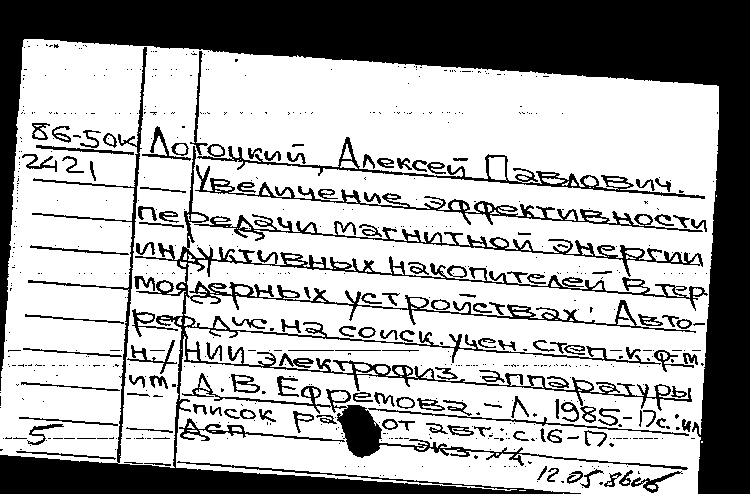 86-50к Лотоцкий, Алексей Павлович.
2421 Увеличение эффективности
передачи магнитной энергии
индуктивных накопителей в тер-
моядерных устройствах: Авто-
реф. дис. на соиск. учен. степ. к. ф.-м.
н. / НИИ электрофиз. аппаратуры
им. Д. В. Ефремова. - Л., 1985. - 17 с.: ил
Список работ авт.: с. 16-17.
5 Деп экз. №4.
12.05.86